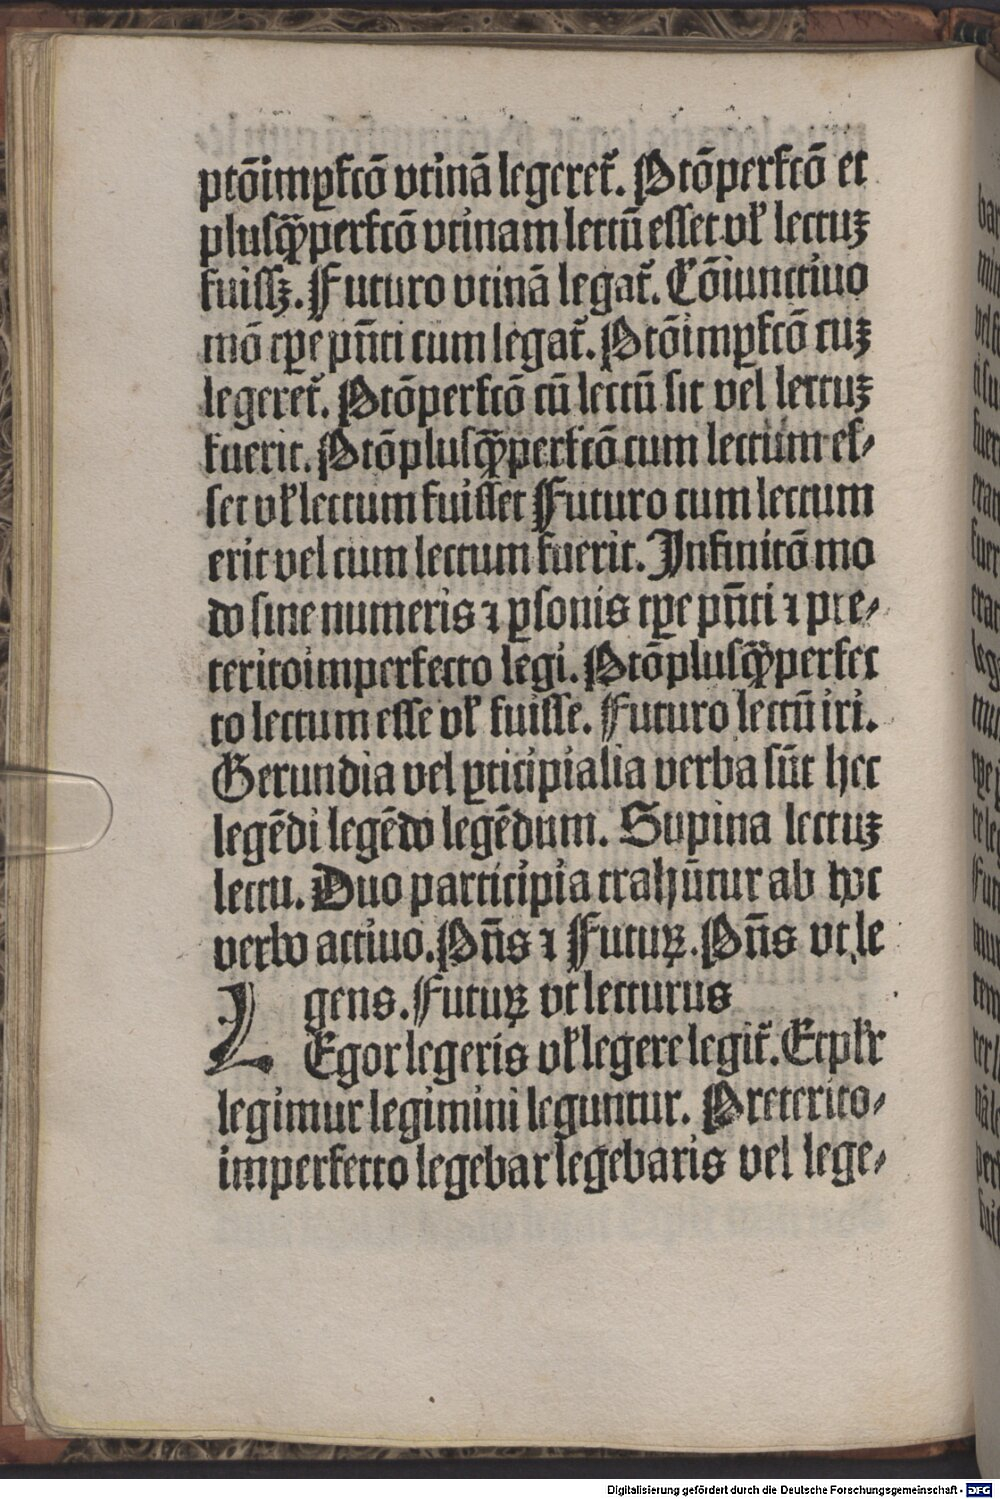 ptõimꝑfctõ vtinã legeret᷑. Ptõperfctõ et
plusq̃ꝑperfctõ vtinam lectũ esset vl̕ lectuꝫ
fuissꝫ. Futuro vtinã legat᷑. Cõiunctiuo
mõ tꝑe pñti cum legat᷑. Ptõimꝑfctõ cuꝫ
legeret᷑. Ptõperfctõ cũ lectũ sit vel lectuꝫ
fuerit. Ptõplusq̃ꝑperfctõ cum lectum es⸗
set vl̕ lectum fuisset Futuro cum lectum
erit vel cum lectum fuerit. Infinitõ mo
do sine numeris ⁊ ꝑsonis tꝑe pñti ⁊ pre⸗
teritoimperfecto legi. Ptõplusq̃ꝑperfec
to lectum esse vl̕ fuisse. Futuro lectũ iri.
Gerundia vel ꝑticipialia verba sũt hec
legẽdi legẽdo legẽdum. Supina lectuꝫ
lectu. Duo participia trahũtur ab hoc
verbo actiuo. Pñs ⁊ Futuꝝ. Pñs vt le
gens. Futuꝝ vt lecturus
L Egor legeris vl̕ legere legit᷑. Et pl̕r
legimur legimini leguntur. Preterito⸗
imperfecto legebar legebaris vel lege⸗
Digitalisierung gefördert durch die Deutsche Forschungsgemeinschaft - DFG